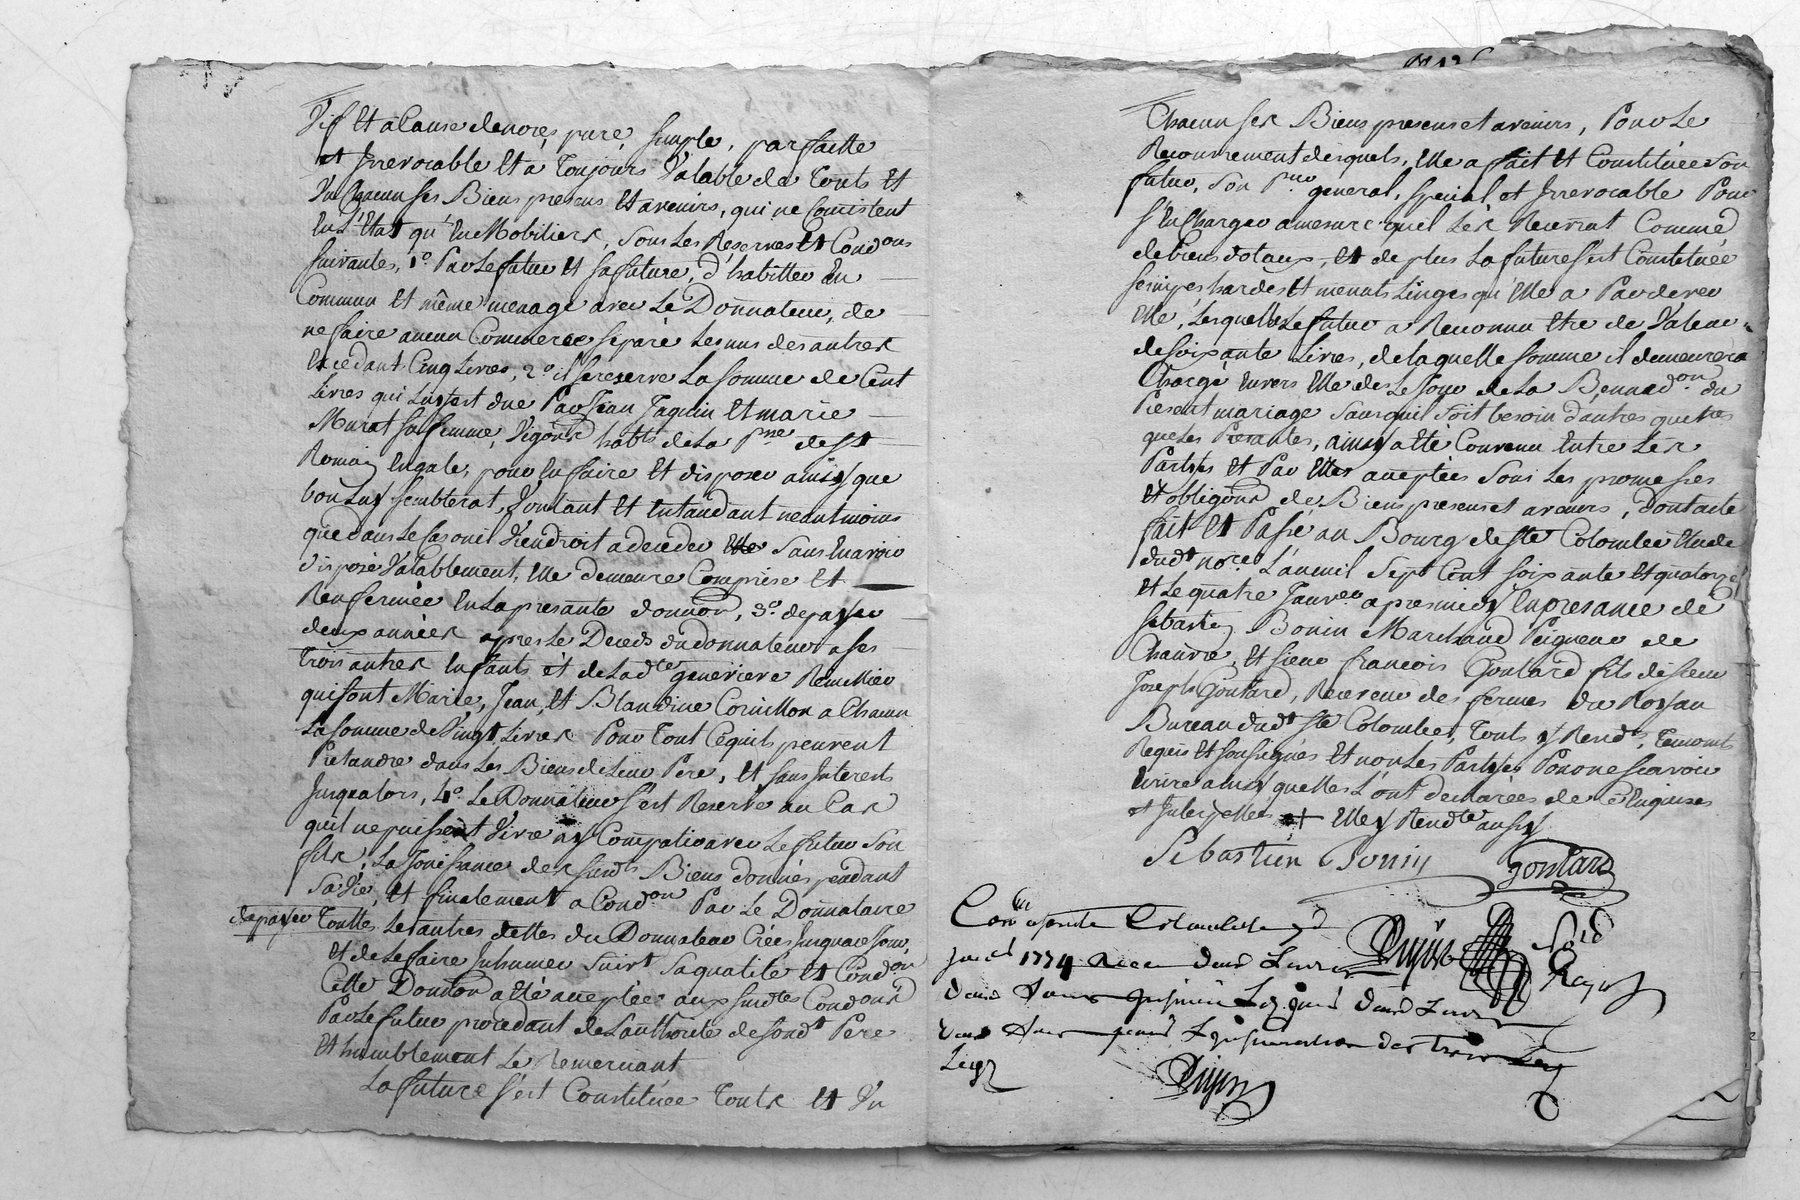 Vif Et a Cause denoçes pure, simple, parfaitte
et Irrevocable Et a Toujours Valable de Touts Et
Un Chacun ses Biens presens Et avenirs, qui ne Consistent
En L'Etat qu'En Mobiliers, sous Les Reserves Et Condons
suivantes, 1o. Par Le futur Et sa future, d'habitter En
Commun Et même menage avec Le Donnateur, de
ne faire aucun Commerce séparé Les uns des autres
Excedant Cinq Livres, 2o. il se reserve La somme de Cent
Livres qui Luy est due Par Jean Jaquin Et marie
Murat sa femme, Vigons habts de La Psse de St
Romain En gale, pour En faire Et disposer ainsy que
bon Luy semblerat, Voulant Et Entandant neantmoins
que dans Le Cas ou il Viendroit a deceder Sans En avoir
disposé Valablement, Elle demeure Comprise Et
Renfermée En La presante donnon, 3o. de payer
deux années apres Le Deceds du donnateur a ses
Trois autres Enfants et de Lad.te genevieve Remellieu
qui sont Marie, Jean, Et Blandine Cornillon a Chacun
La somme de Vingt Livres Pour Tout Cequils peuvent
Pretandre dans Les Biens de Leur Pere, Et sans Interests
Jusqu'alors, 4o. Le Donnateur s'est Reservé au Cas
quil ne puissent Vivre ny Compatir avec Le futur Son
fils, La Jouissance des susdts Biens donnés pendant
Sa Vie, Et finalement a Condon Par Le Donnataire
depayer Touttes Les autres dettes du Donnateur Créés Jusqu'a ce Jour,
Et de Le faire Inhumer suivt Sa qualité Et Condon
Cette Donnon a été acceptée aux susdtes Condons
Par Le futur procedant de L'authorité de sondt Pere
Et humblement Le Remerciant
La future s'est Constituée Touts Et Un
Chacun ses Biens presens et avenirs, Pour Le
Recouvrement desquels, Elle a fait Et Constituée Son
futur, Son Preur general, special et Irrevocable Pour
s'En Charger amesure quil Les Recevrat Comme
de biens dotaux, Et de plus La future s'est Constituée
ses nipes hardes Et menuts Linges qu'Elle a Par devers
Elle, Lesquelles Le futur a Reconnu Etre de Valeur
de soixante Livres, de laquelle somme il demeurera
Chargé Envers Elle dès Le Jour de La Bennedon du
Present mariage Sans quil soit besoin d'autres quittes
que Les Presantes, ainsy a été Convenu Entre Les
Partyes Et Par Elles acceptées Sous Les promesses
Et obligons de Biens presens et avenirs, dont acte
fait Et Passé au Bourg de Ste Colombe Etude
dudt nore L'an mil Sept Cent soixante Et quatorze
Et Le quatre Janvier apres midy En presance de
Sebastien Bonin Marchand Peigneur de
Chanvre, Et sieur francois Goutard fils de sieur
Joseph Goutard, Receveur des fermes du Roy au
Bureau dudt Ste Colombe, Touts y Rendts, Temoints
Requis Et Sousignés Et non Les Partyes Pour ne scavoir
Ecrire ainsy quelles L'ont declarées de ce Enquises
et Interpellées + Elle y Rendte aussy
Sebastien Bonin Goutard
1774